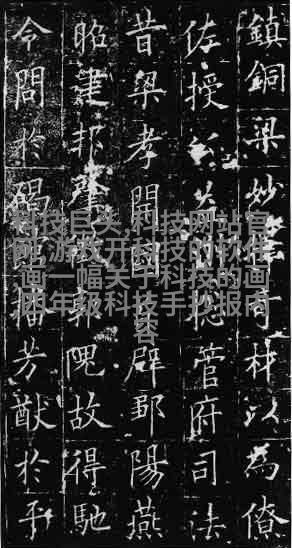 鎮銅梁妙奇材以為僚
佐授管府司法
昔梁孝開國辟鄒陽燕
昭建邦肇郭隗故得馳
令問於碣播芳猷於平
科技巨头,科技网站官
网,游戏开科技的软件
画一幅关于科技的画
,四年级科技手抄报内
容